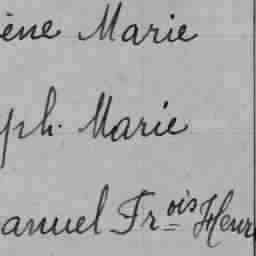 ène Marie
ph. Marie
anuel Frois Henr